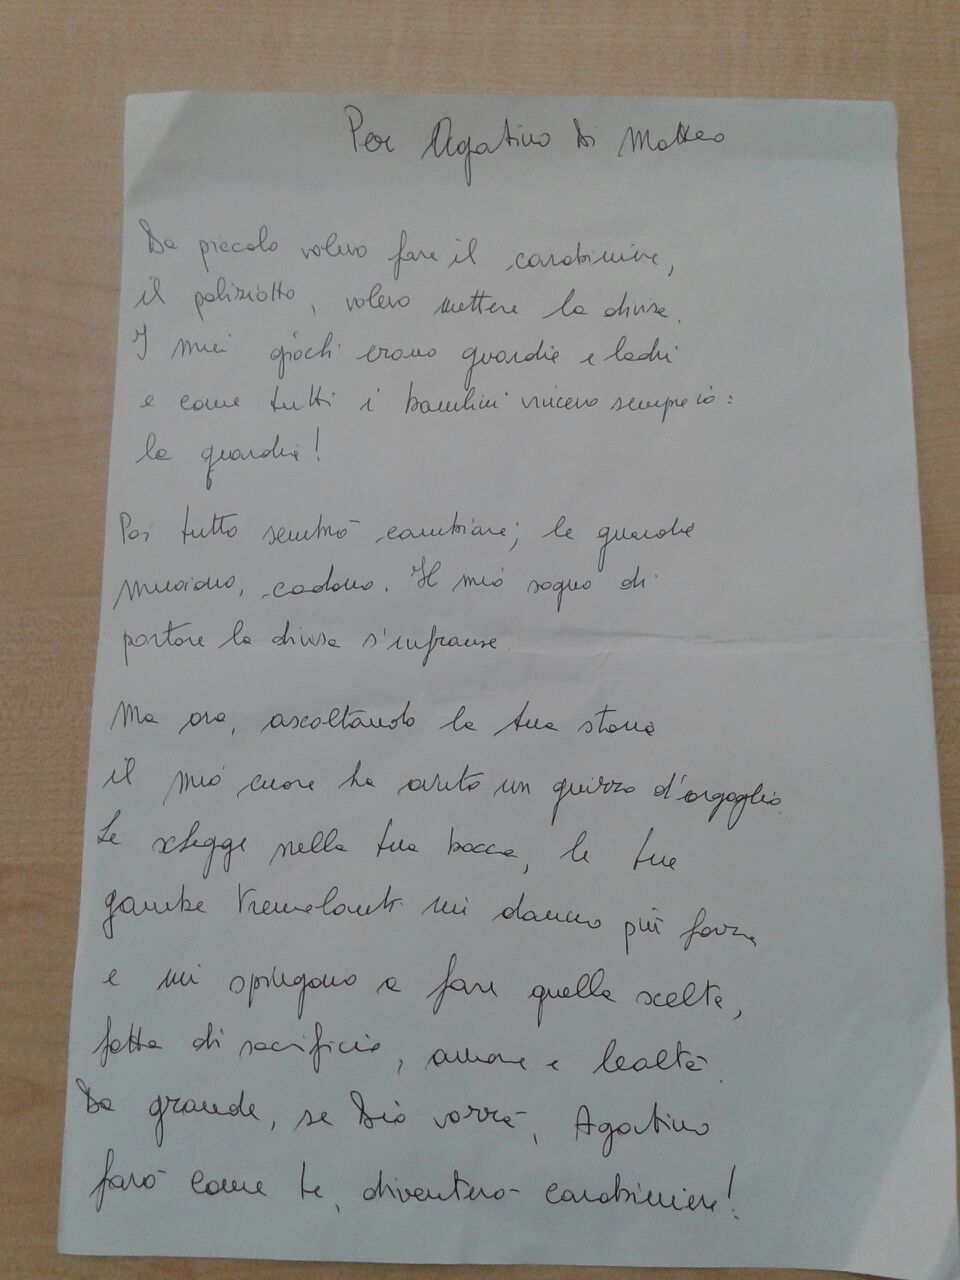 Per Agatino Di Matteo
Da piccolo volevo fare il carabiniere,
il poliziotto, volevo mettere la divisa.
I miei giochi erano guardie e ladri
e come tutti i bambini vincevo sempre io:
la guardia!
Poi tutto sembrò cambiare; le guardie
muoiono, cadono. Il mio sogno di
portare la divisa s'infranse.
Ma ora, ascoltando la tua storia
il mio cuore ha avuto un guizzo d'orgoglio.
Le schegge nella tua bocca, le tue
gambe tremolanti mi danno più forza
e mi spingono a fare quella scelta,
fatta di sacrificio, amore e lealtà.
Da grande, se Dio vorrà, Agatino
farò come te, diventerò carabiniere!